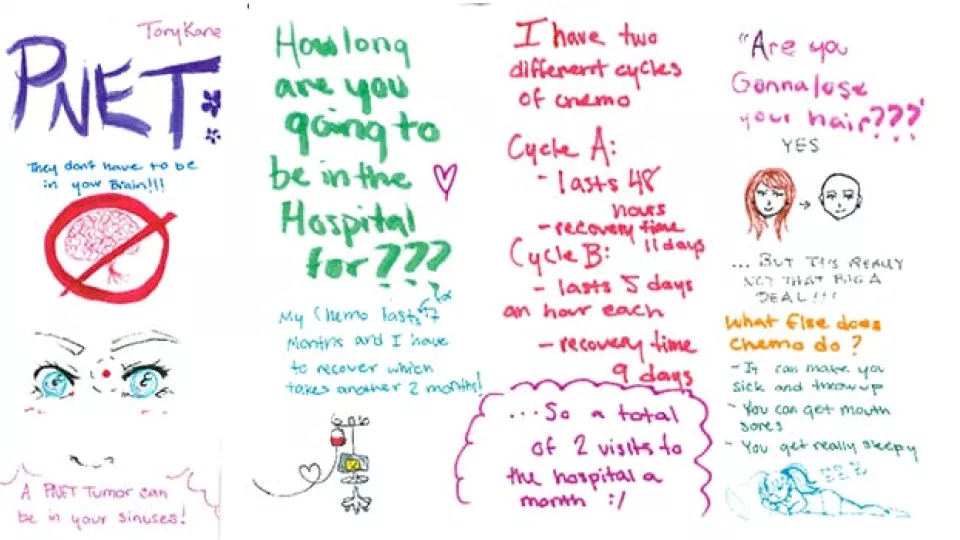 Tory Kane
PNET:
They don't have to be
in your Brain!!!
A PNET Tumor can
be in your sinuses!
How long
are you
going to
be in the
Hospital
for???
My Chemo lasts for 7
months and I have
to recover which
takes another 2 months!
I have two
different cycles
of chemo
Cycle A:
- lasts 48
hours
- recovery time
11 days
Cycle B:
- lasts 5 days
an hour each
- recovery time
9 days
...So a total
of 2 visits to
the hospital a
month :/
"Are you
Gonna lose
your hair???"
YES
... BUT IT'S REALLY
NOT THAT BIG A
DEAL!!!
What Else does
chemo do?
- It can make you
sick and throw up
- You can get mouth
sores
- You get really sleepy
ZZZ